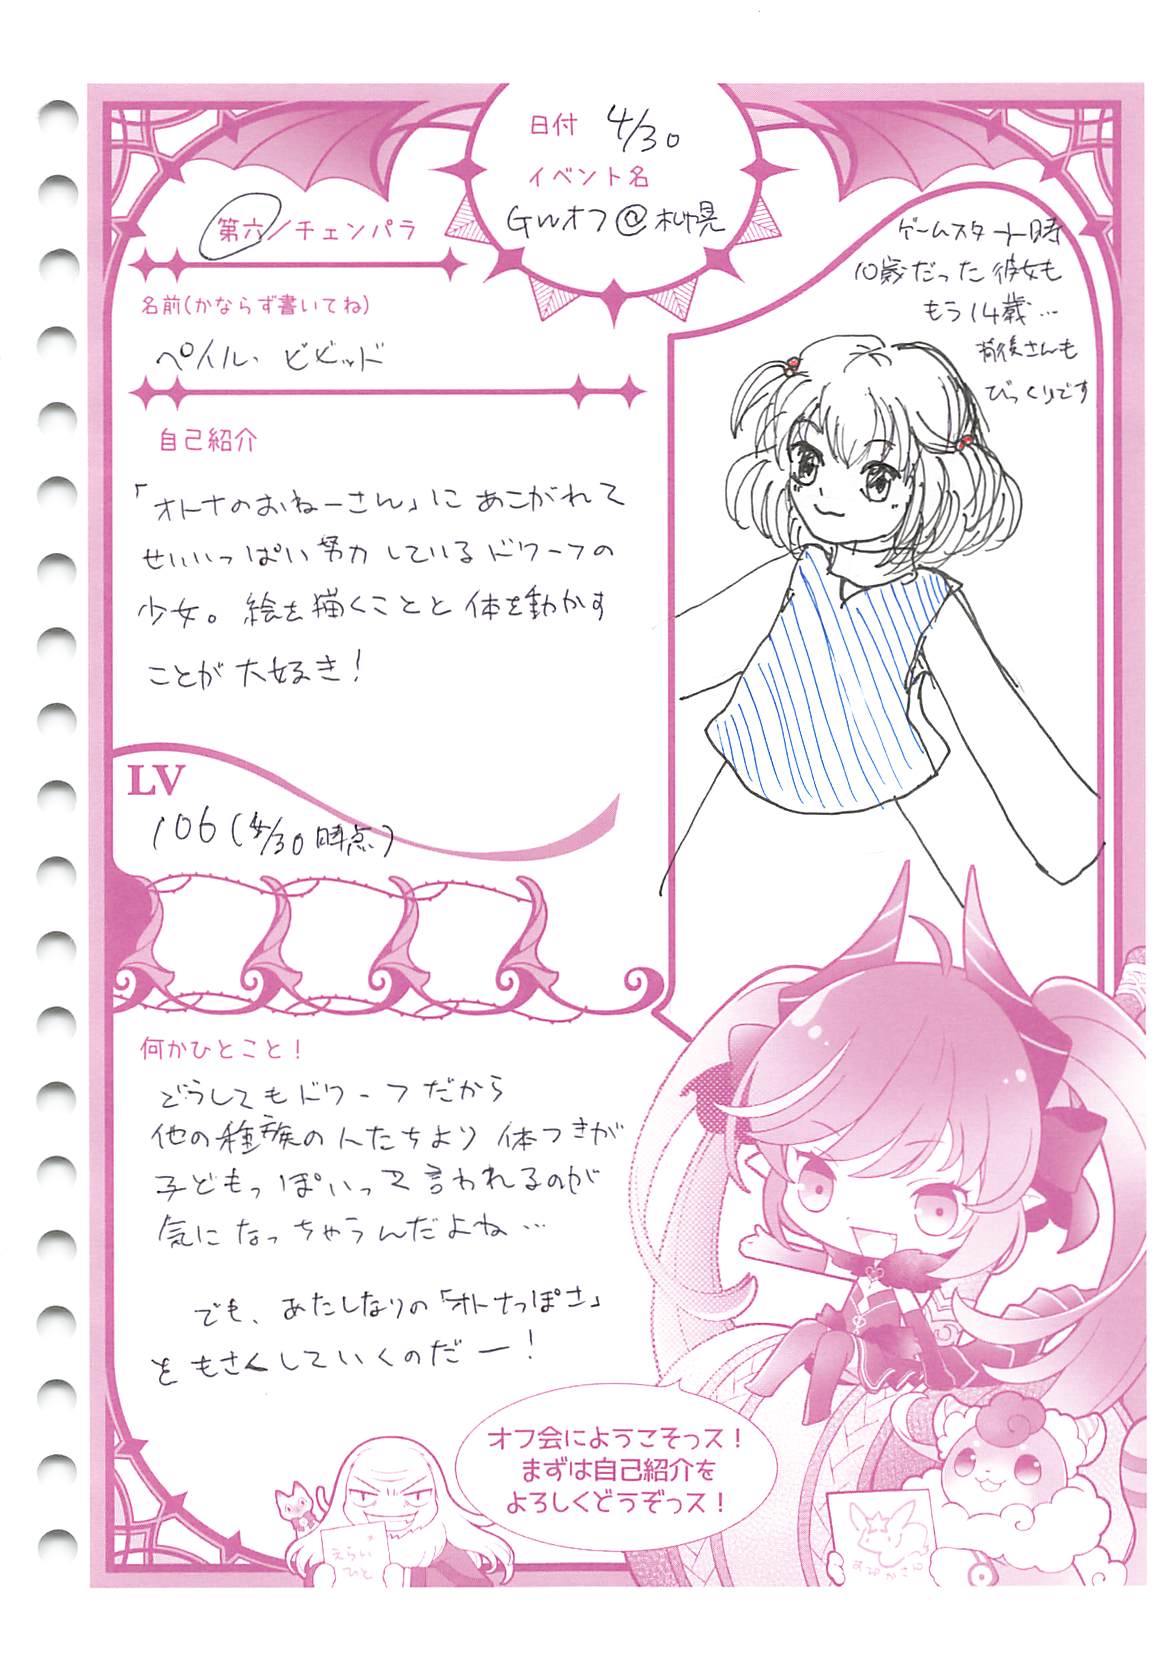 日付 4/30
イベント名
GWオフ@札幌
第六/チェンパラ
名前(かならず書いてね)
ペイル・ビビッド
自己紹介
「オトナのおねーさん」に あこがれて
せいいっぱい努力しているドワーフの
少女。絵を描くことと体を動かす
ことが大好き!
ゲームスタート時
10歳だった彼女も
もう14歳…
背後さんも
びっくりです
LV
106(4/30時点)
何かひとこと!
どうしてもドワーフだから
他の種族の人たちより 体つきが
子どもっぽいって言われるのが
気になっちゃうんだよね…
でも、あたしなりの「オトナっぽさ」
をもさくしていくのだー!
オフ会にようこそっス!
まずは自己紹介を
よろしくどうぞっス!
えらい
ひと